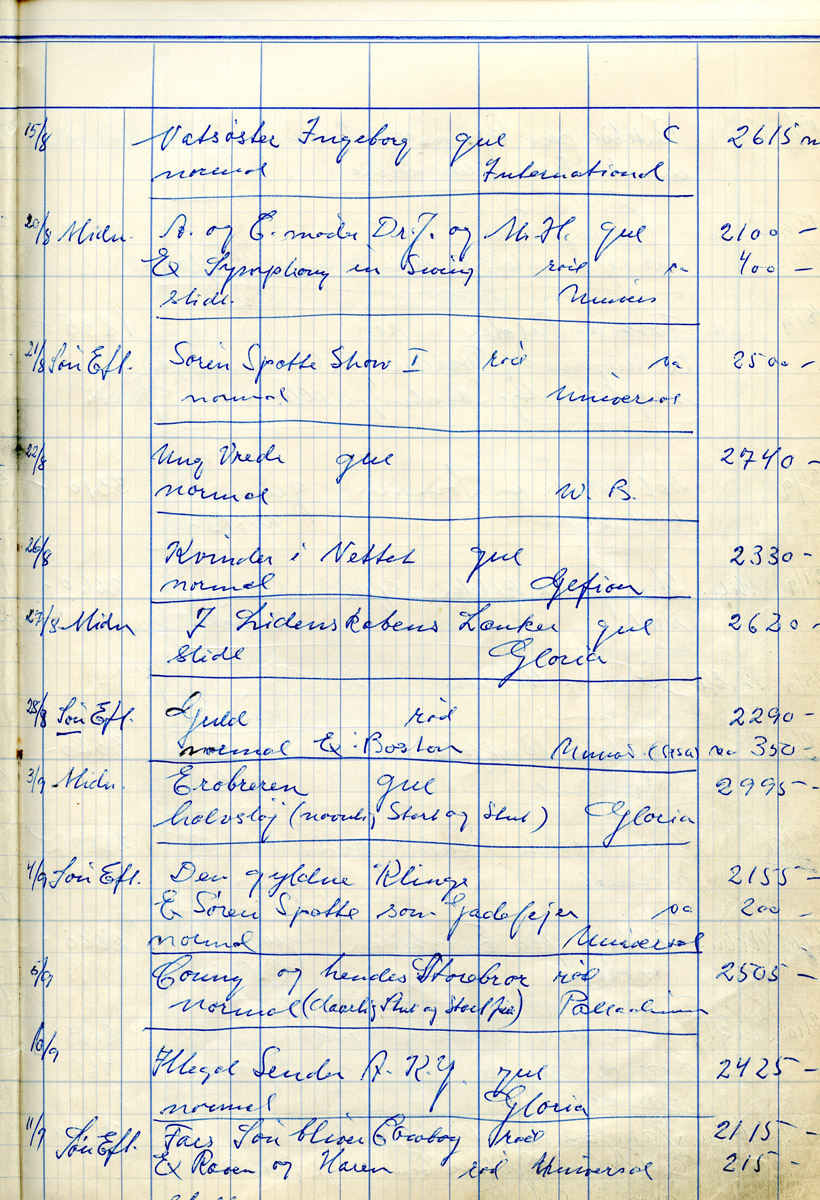 15/8 Natsöster Ingeborg gul C 2615 m
normal International
20/8 Midn. A. og C. möder Dr. J. og M. H. gul 2100 -
Ex Symphony in Swing röd sa 400 -
slidt. Univers
21/8 Søn Eft. Sören Spætte Show I röd sa 2500 -
normal Universal
22/8 Ung Vrede gul 2740 -
normal W. B.
26/8 Kvinder i Nettet gul 2330 -
normal Gefion
27/8 Midn I Lidenskabens Lænker gul 2620 -
slidt Gloria
28/8 Søn Eft. Guld röd 2290 -
normal Ex: Boston sa 350 -
3/9 Midn. Erobreren gul 2995 -
halvstöj ( Start og Slut) Gloria
4/9 Søn Eft. Den gyldne Klinge 2155 -
Ex Søren Spætte som Gadefejer sa 200 -
normal Universal
5/9 Conny og hendes Storebror röd 2505 -
normal (daarlig Slut og Start ) Palladium
10/9
Illegal Sender A. K. Y. gul 2425 -
normal Gloria
11/9 Søn Eft. Fars Søn bliver Cowboy röd 2115 -
Ex Raven og Haren röd Universal 215 -